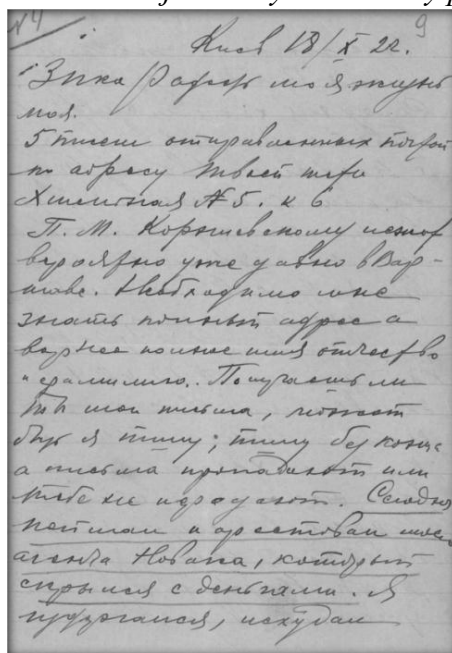 №4
9
Киев 18/X 22.
Зика моя жизнь
моя.
5 писем отправленных почтой
по адресу твоей тети
№ 5. к 6
П. М.
вероятно уже давно в Вар-
шаве. Необходимо мне
знать полный адрес а
вернее полное имя отчество
и фамилию. Получаешь ли
ты мои письма, может
быть я пишу; пишу без конца
а письма пропадают или
тебе не передают. Сегодня
пойман и арестован мой
агента Новака, который
скрылся с деньгами. Я
исхудал